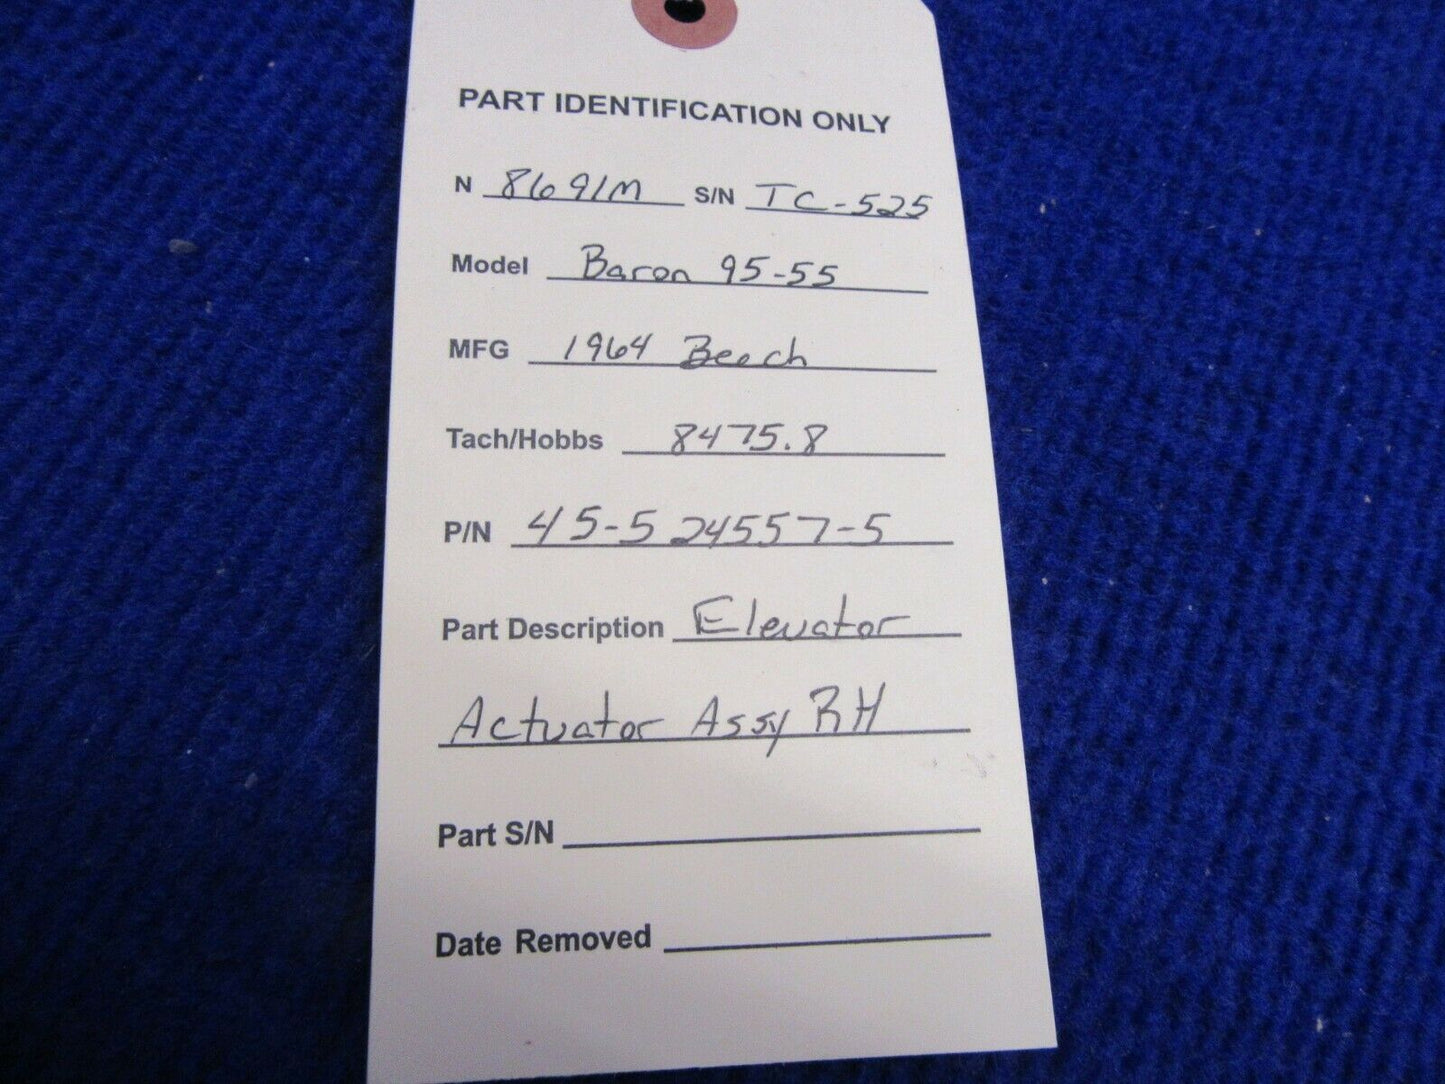 PART IDENTIFICATION ONLY
N 8691M S/N TC-525
Model Baron 95-55
MFG 1964 Beech
Tach/Hobbs 8475.8
P/N 45-524557-5
Part Description Elevator
Actuator Assy RH
Part S/N
Date Removed